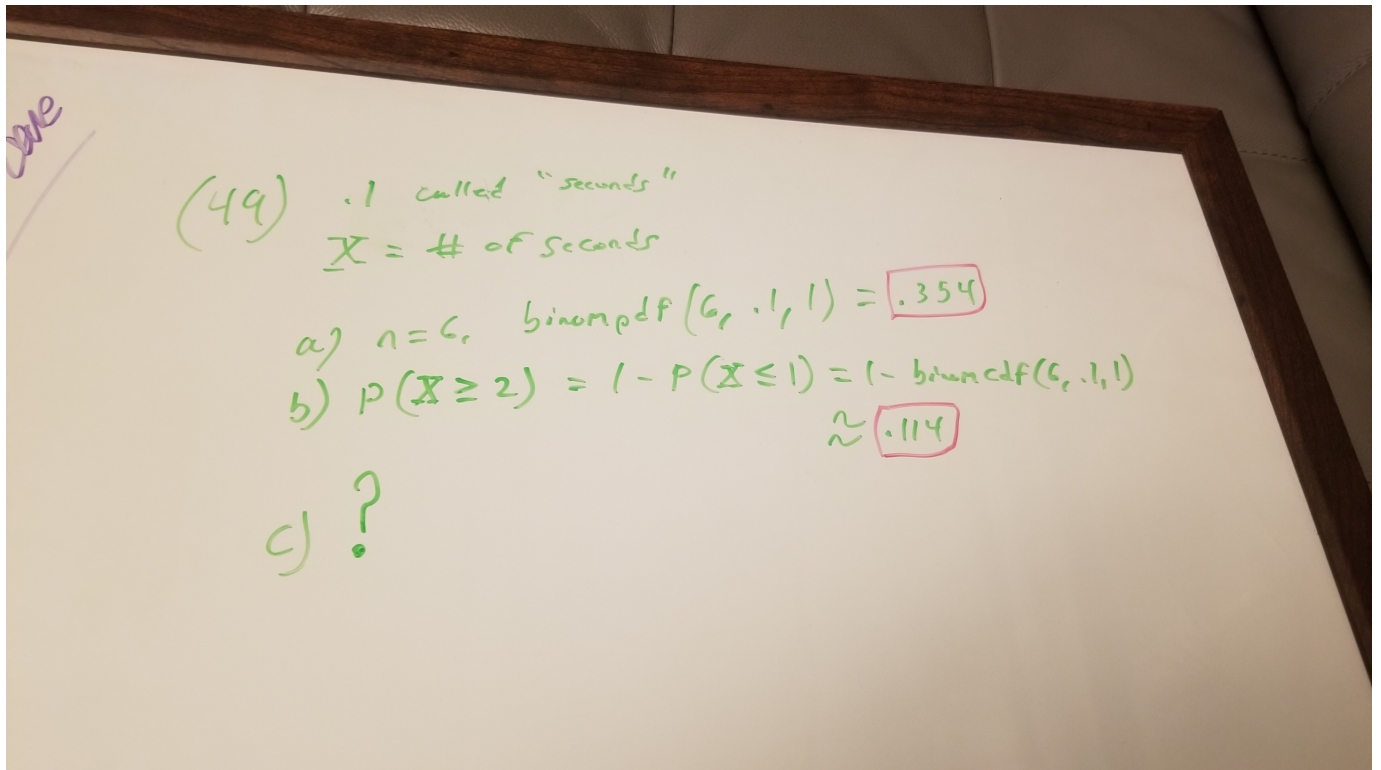 (49) .1 called "seconds"
X = # of seconds
a) n=6, binompdf(6, .1, 1) = .354
b) P(X ≥ 2) = 1 - P(X ≤ 1) = 1 - binomcdf(6, .1, 1)
≈ .114
c) ?